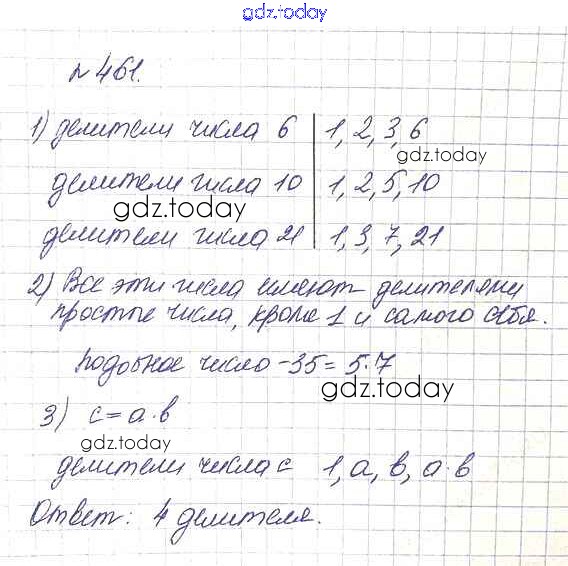 gdz.today
№461.
1) делители числа 6 | 1, 2, 3, 6
gdz.today
делители числа 10 | 1, 2, 5, 10
gdz.today
делители числа 21 | 1, 3, 7, 21
2) Все эти числа имеют делителями
простые числа, кроме 1 и самого себя.
подобное число - 35 = 5·7
gdz.today
3) c = a·в
gdz.today
делители числа c 1, a, в, a·в
Ответ: 4 делителя.